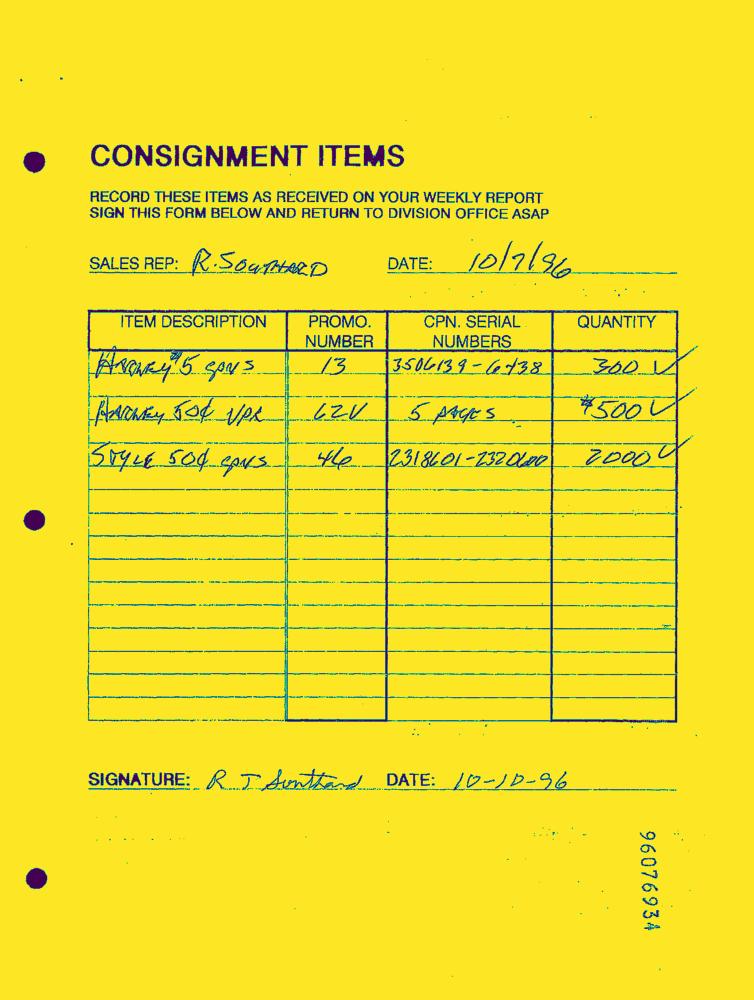 CONSIGNMENT ITEMS
RECORD THESE ITEMS AS RECEIVED ON YOUR WEEKLY REPORT
SIGN THIS FORM BELOW AND RETURN TO DIVISION OFFICE ASAP
SALES REP: R. SOUTHARD DATE: 10/7/96
ITEM DESCRIPTION PROMO. NUMBER CPN. SERIAL NUMBERS QUANTITY
$5 CPNS 13 3506139-6438 300 ✓
50¢ VPR 62V 5 PAGES $500 ✓
STYLE 50¢ CPNS 46 2318601-2320600 2000 ✓
SIGNATURE: R T Southard DATE: 10-10-96
96076934